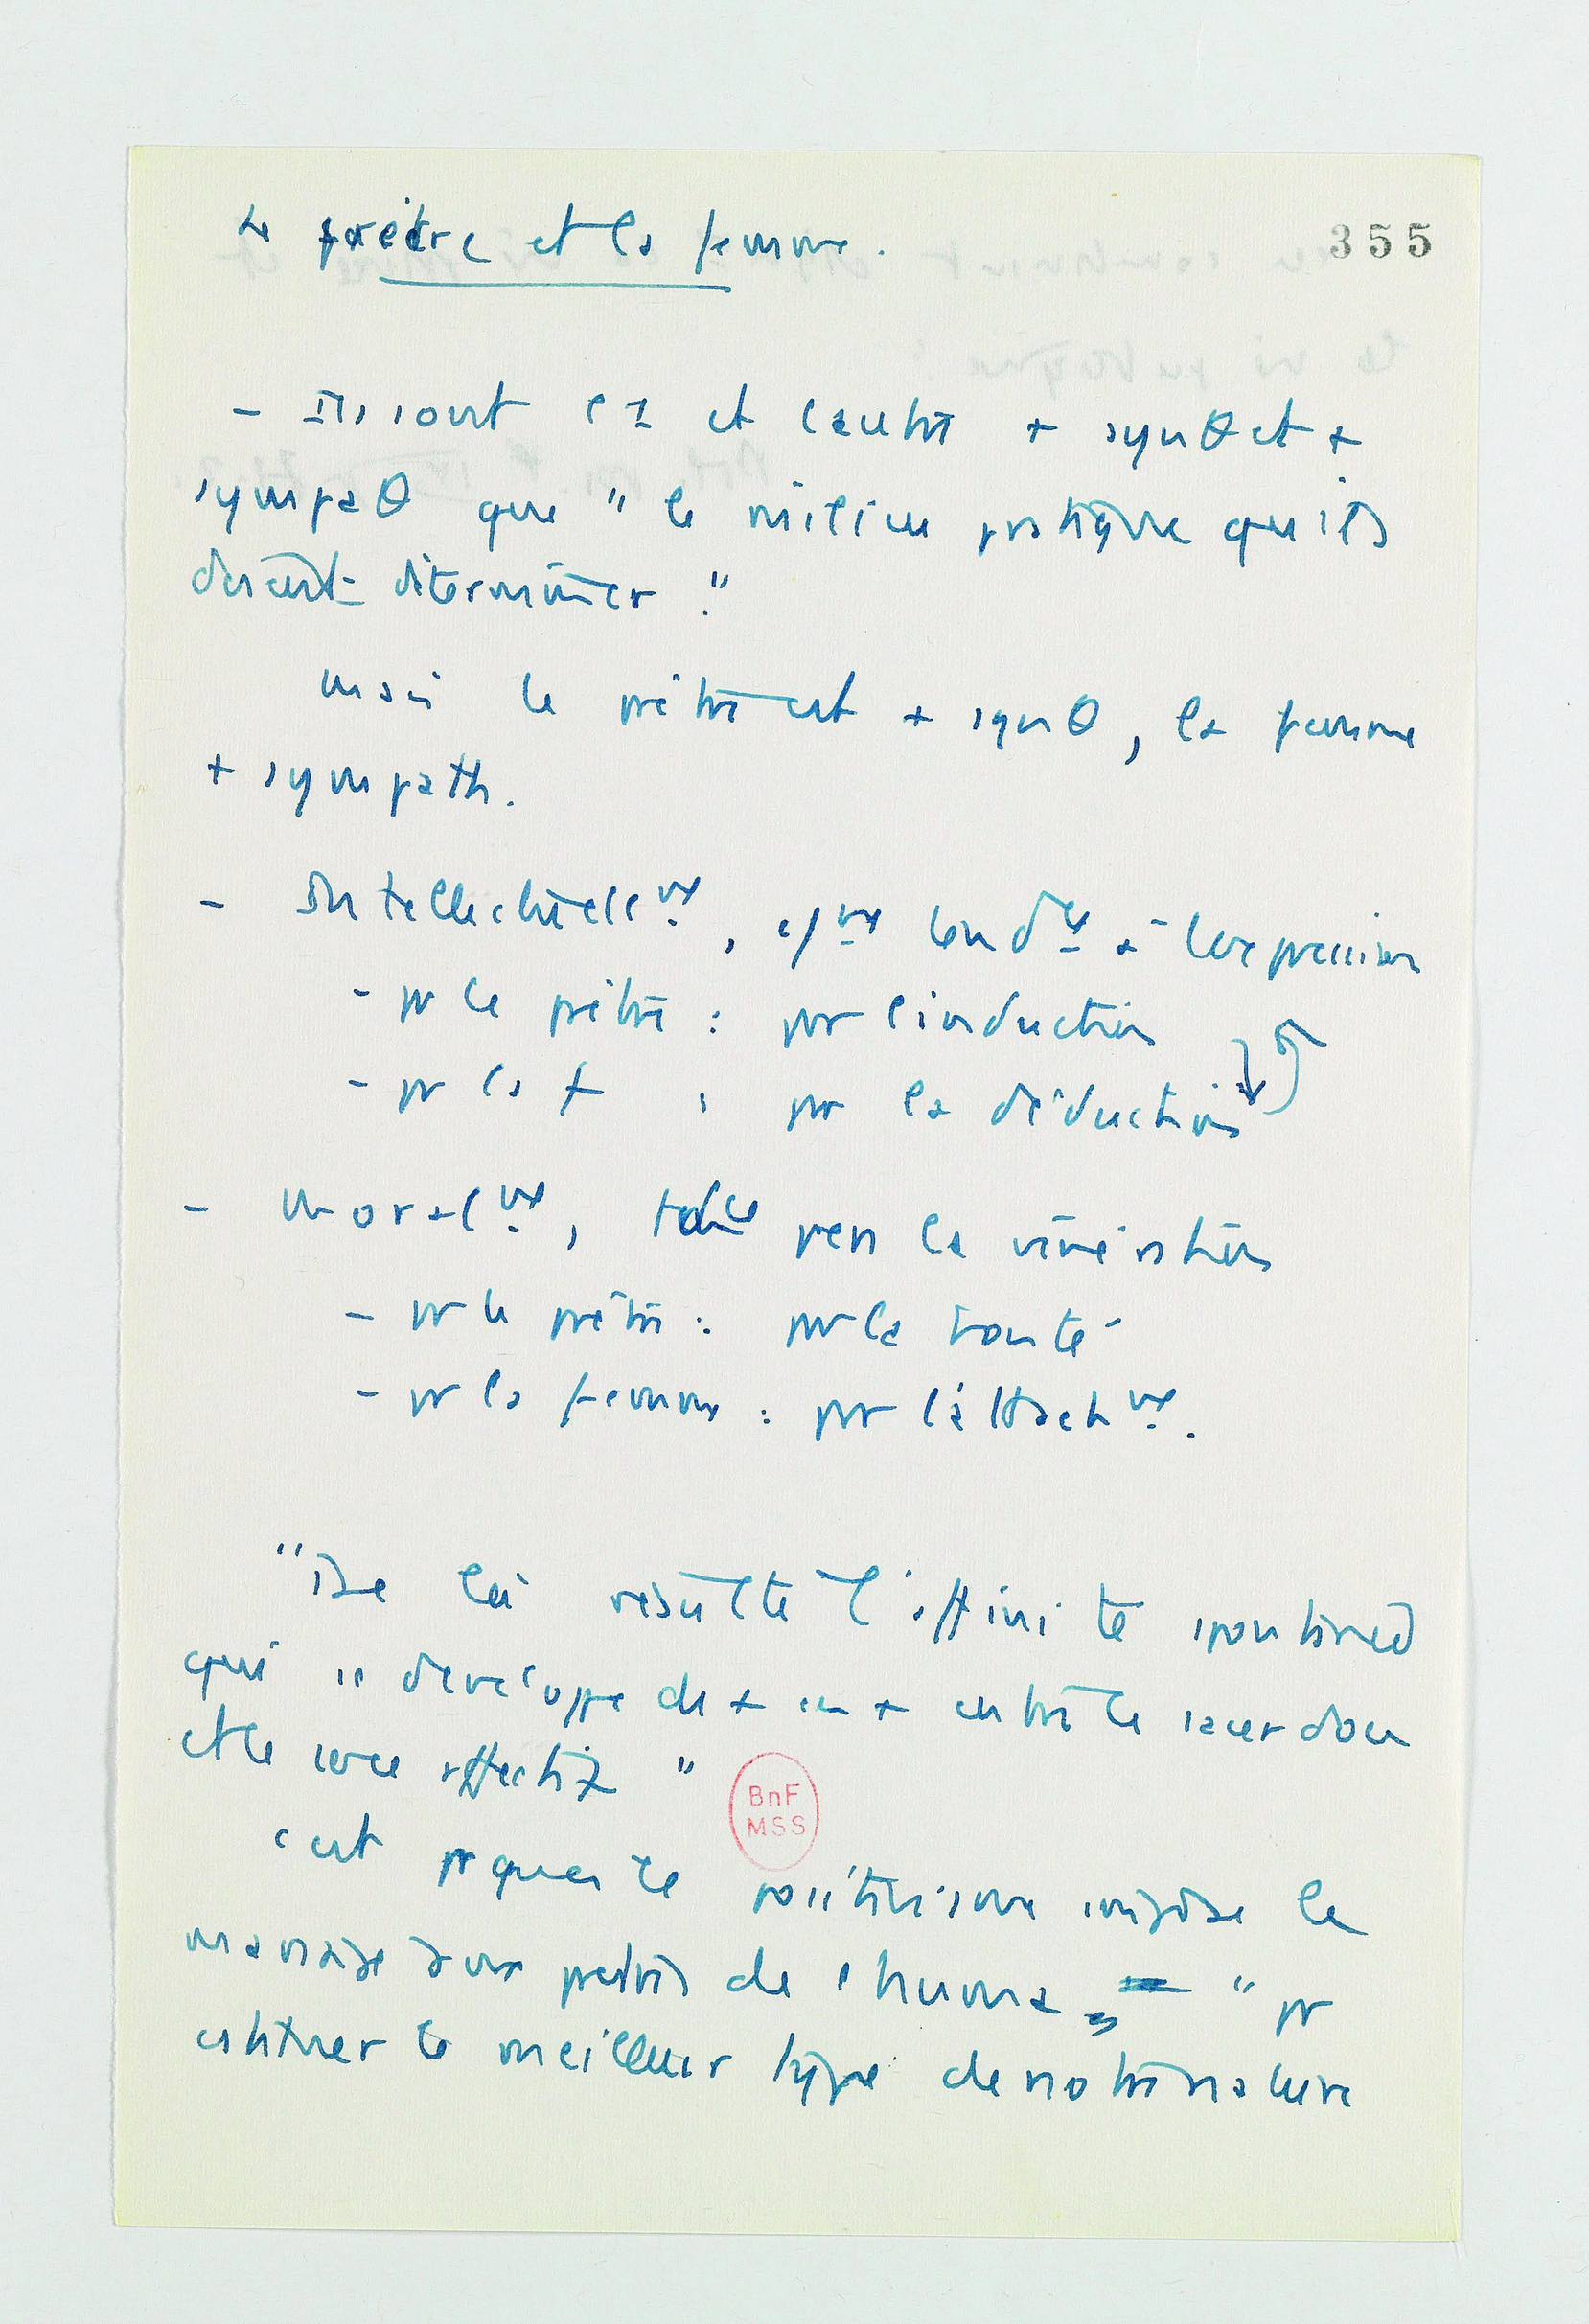 Le prêtre et la femme.
355
- Ils sont l'1 et l'autre + synθ et +
sympaθ que " le milieu pratique qu'ils
doivent déterminer."
mais le prêtre est + synθ, la femme
+ sympath.
- Intellectuellt, tendce à l'expression
- pr le prêtre : par l'induction
- pr la f : par la déduction
- moralt, tdce vers la vénération
- pr le prêtre : par la bonté
- pr la femme : par l'attacht.
"De là résulte l'affinité spontanée
qui se développe de + en + entre le sacerdoce
et le sexe affectif "
BnF
MSS
c'est pr quoi le positivisme impose le
mariage aux prêtres de l'huma "pr
constituer le meilleur type de notre nature